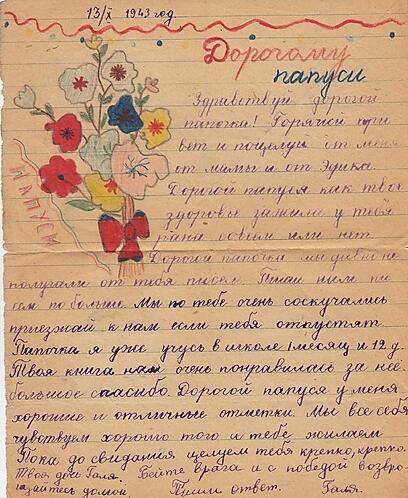 13/X 1943 год.
Дорогому
папуси
Здравствуй дорогой
папочка! Горячой при
вет и поцелуи от меня
от мамы и от Эдика.
Дорогой папуся как твоё
здоровье зажила у тебя
рана совсем или нет
ПАПУСИ
Дорогой папочка мы давно не
получали от тебя писем. Пиши нам пи
сем по больше. Мы по тебе очень соскучались
приезжай к нам если тебя отпустят.
Папочка я уже учусь в школе 1 месяц и 12 д.
Твоя книга нам очень понравилась за неё
большое спасибо. Дорогой папуся у меня
хорошие и отличные отметки. Мы все себя
чувствуем хорошо того и тебе желаем
Пока до свидания целуем тебя крепко, крепко.
Твоя дочь Галя. Бейте врага и с победой возвра-
щайтесь домой. Пиши ответ. Галя.